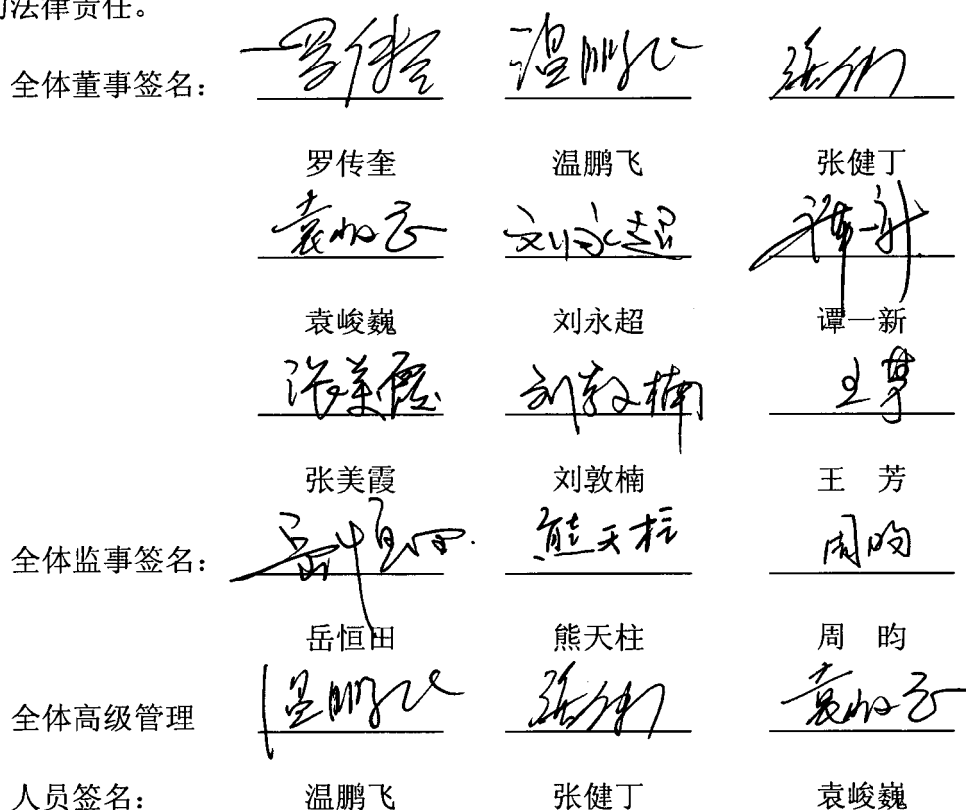 法律责任。
全体董事签名： 温鹏飞
罗传奎 温鹏飞 张健丁
刘永超 谭一新
袁峻巍 刘永超 谭一新
张美霞 刘敦楠 王芳
张美霞 刘敦楠 王 芳
全体监事签名： 岳恒田 熊天柱 周昀
岳恒田 熊天柱 周 昀
全体高级管理 温鹏飞
人员签名： 温鹏飞 张健丁 袁峻巍